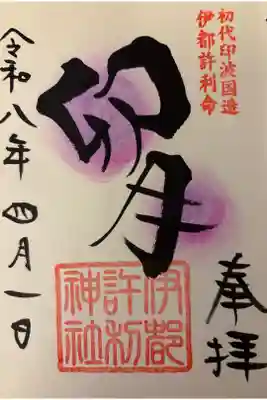 初代印波国造
伊都許利命
奉拝
卯月
伊都
許利
神社
令和八年四月一日